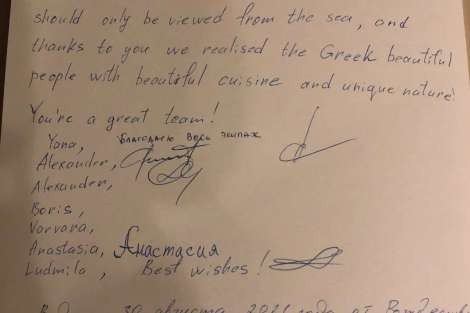 should only be viewed from the sea, and
thanks to you we realised the Greek beautiful
people with beautiful cuisine and unique nature!
You're a great team!
Yana, БЛАГОДАРЮ ВЕСЬ ЭКИПАЖ
Alexander,
Alexander,
Boris,
Varvara,
Anastasia, Анастасия
Ludmila, Best wishes!
30 августа 2021 года от